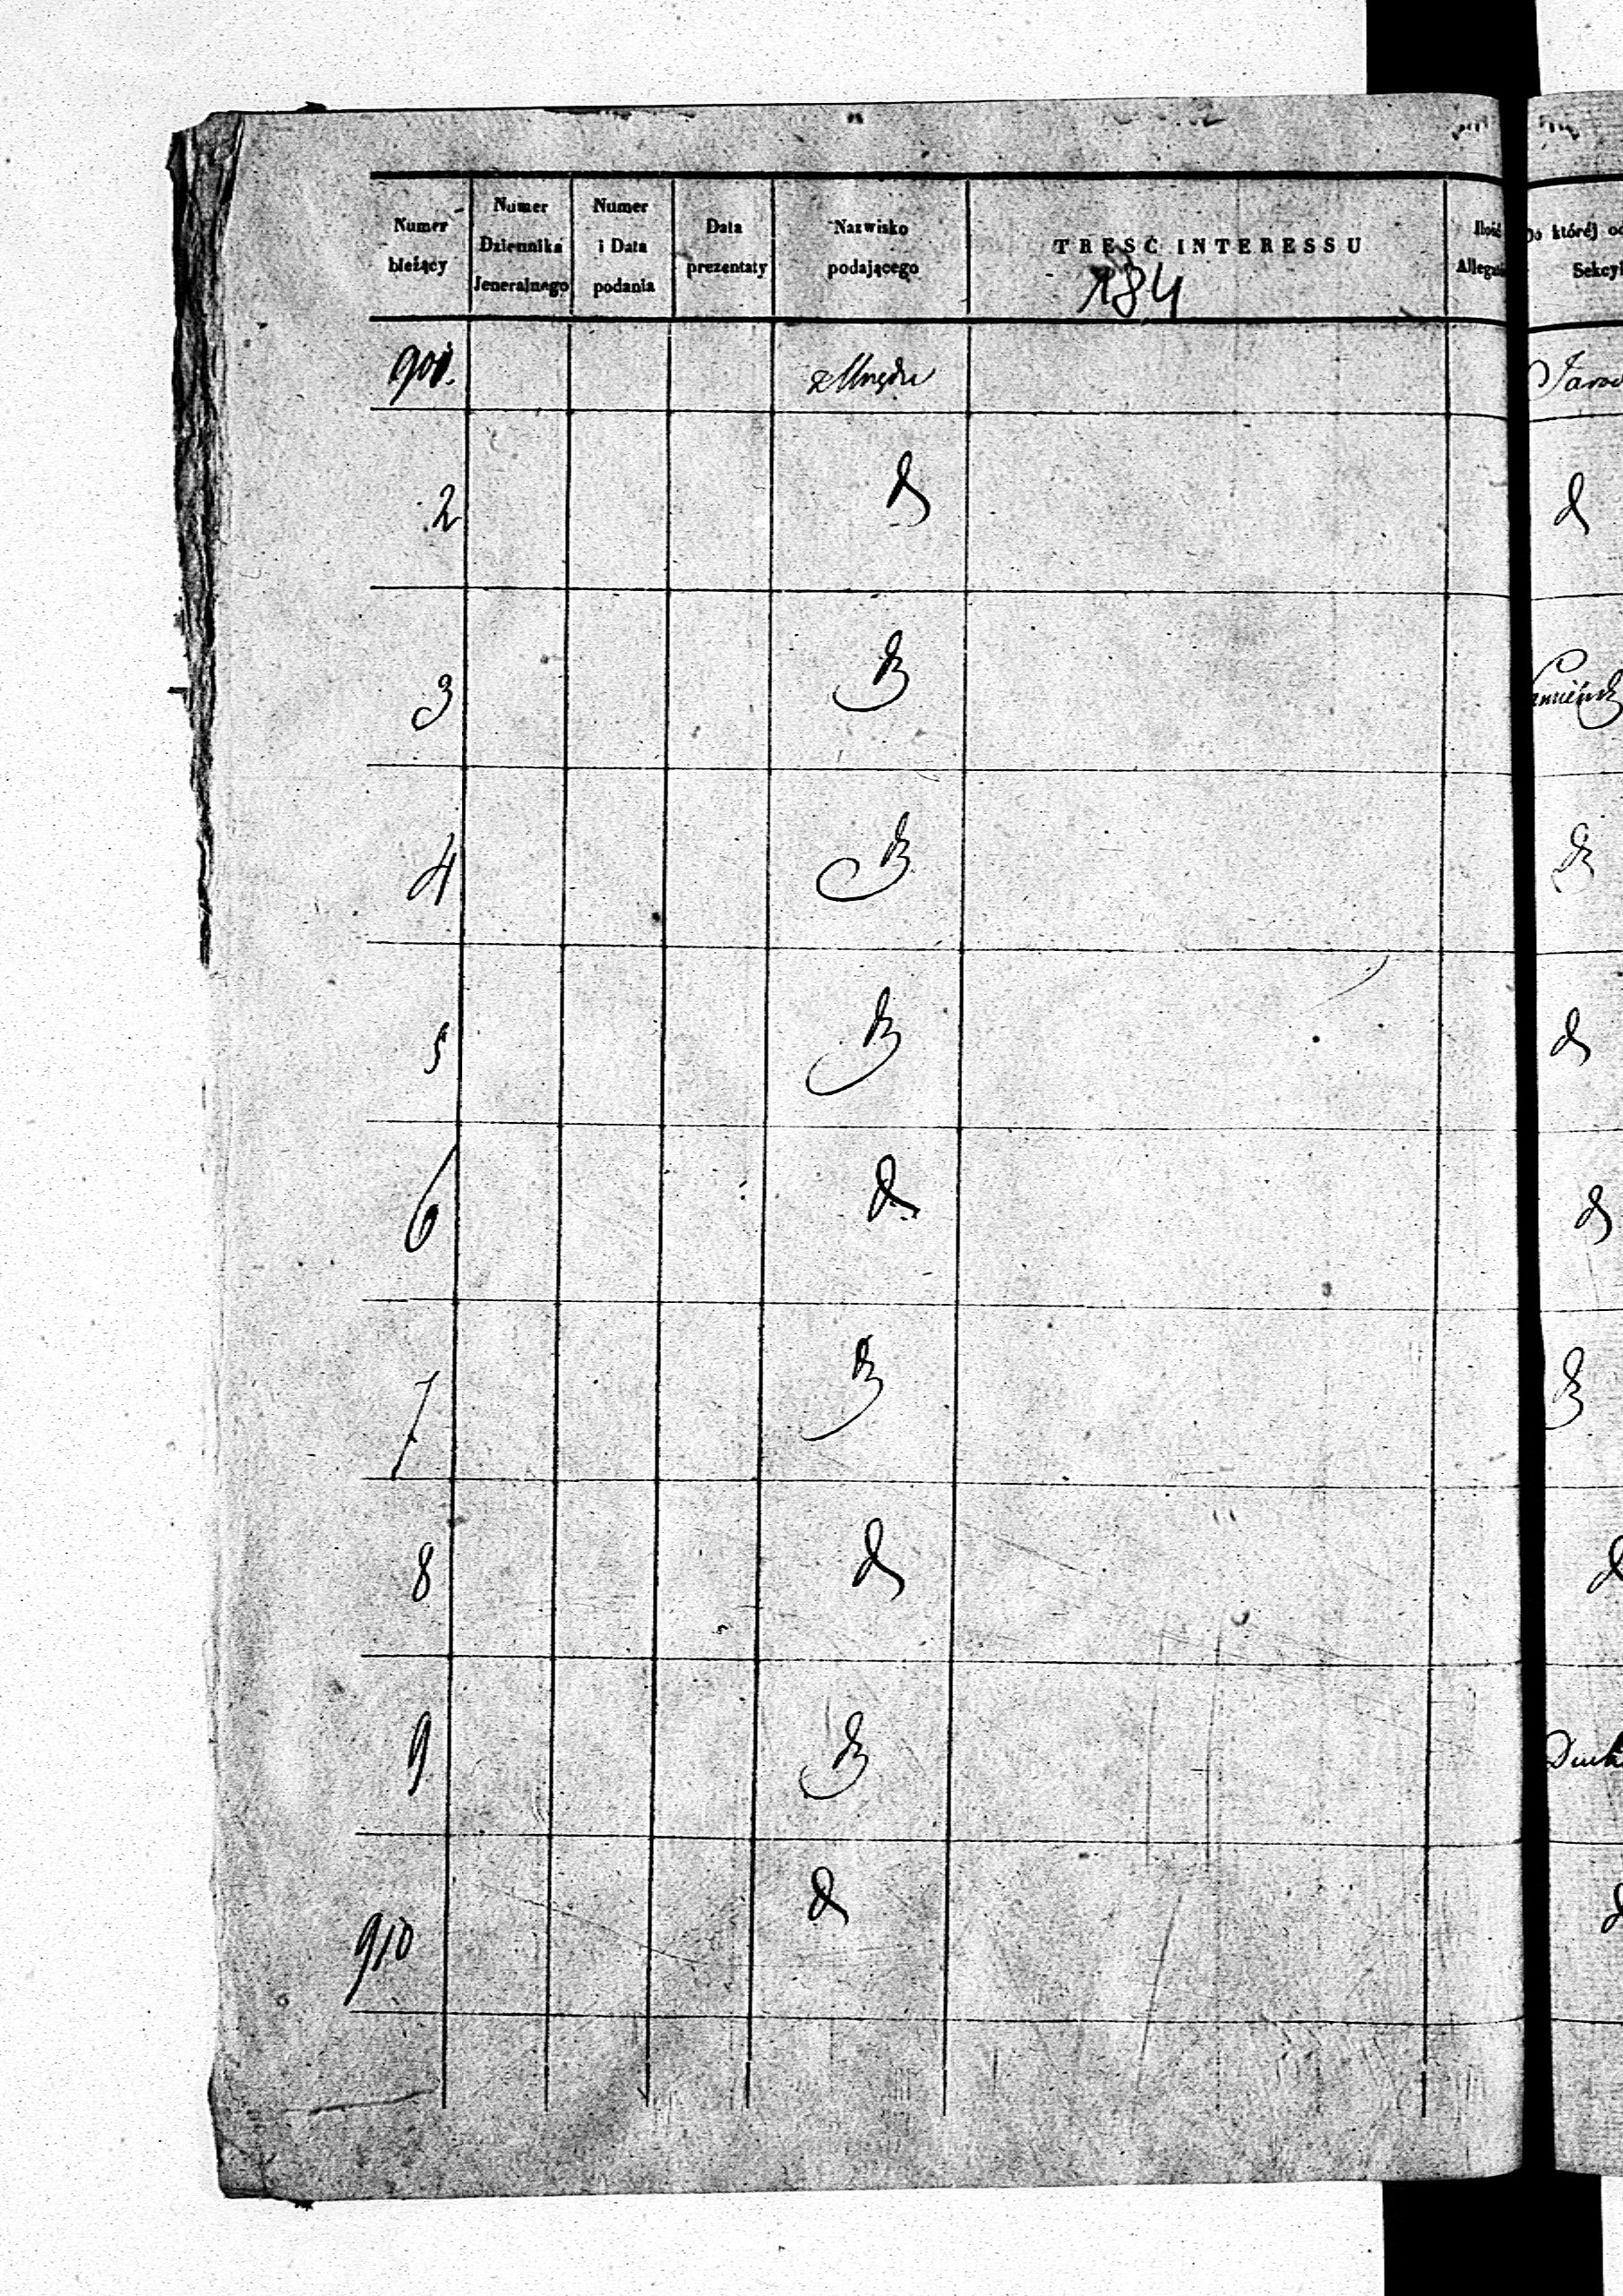 Numer bieżący
Numer Dziennika Jeneralnego
Numer i Data podania
Data prezentaty
Nazwisko podającego
TREŚĆ INTERESSU
Ilość
Do któréj
184
901. z Urzędu
2 d
3 d
4 d
5 d
6 d
7 d
8 d
9 d
910 d